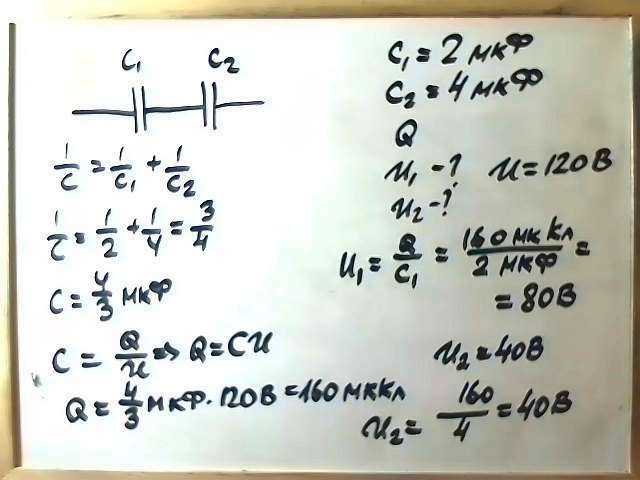 C₁ C₂
1/C = 1/C₁ + 1/C₂
1/C = 1/2 + 1/4 = 3/4
C = 4/3 мкФ
C = Q/U => Q = CU
Q = 4/3 мкФ · 120В = 160 мкКл
C₁ = 2 мкФ
C₂ = 4 мкФ
Q
U₁ - ? U = 120В
U₂ - ?
U₁ = Q/C₁ = 160 мкКл/2 мкФ =
= 80В
U₂ = 40В
U₂ = 160/4 = 40В